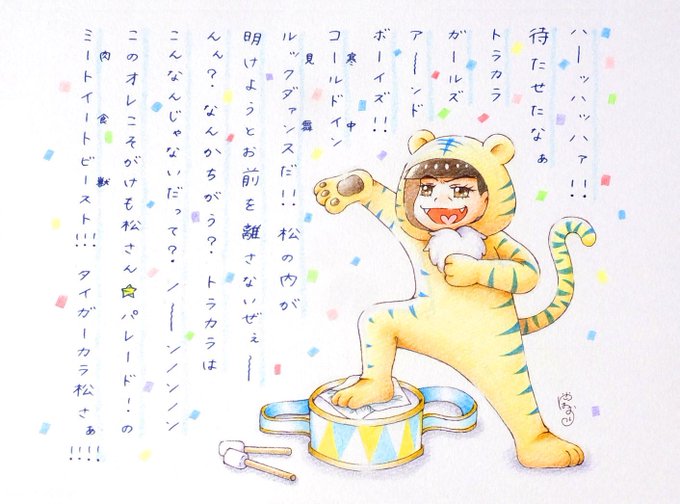 ハーッハッハァ!!
待たせたなぁ
トラカラ
ガールズ
ア〜〜ンド
ボーイズ!!
寒中
コールドイン
見舞
ルックダァンスだ!! 松の内が
明けようとお前を離さないぜぇ〜
んん?なんかちがう?トラカラは
こんなんじゃないだって?ノ〜〜ンノンノン
このオレこそがけも松さん☆パレード!の
肉食獣
ミートイートビースト!!! タイガーカラ松さぁ!!!!